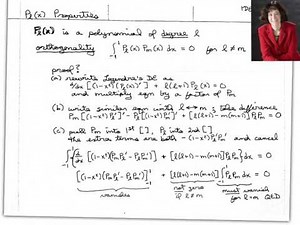 Pℓ(x) Properties
Pℓ(x) is a polynomial of degree ℓ
orthogonality ∫₋₁¹ Pℓ(x) Pm(x) dx = 0 for ℓ ≠ m
proof:
(a) rewrite Legendre's DE as
d/dx [(1-x²)(Pℓ(x))'] + ℓ(ℓ+1) Pℓ(x) = 0
and multiply eqn by a factor of Pm
(b) write similar eqn with ℓ↔m; take difference
Pm [(1-x²) Pℓ']' - Pℓ [(1-x²) Pm']' + [ℓ(ℓ+1) - m(m+1)] Pℓ Pm = 0
(c) pull Pm into 1st [ ], Pℓ into 2nd [ ]
the extra terms are both -(1-x²) Pℓ' Pm' and cancel
∫₋₁¹ {d/dx [(1-x²)(Pm Pℓ' - Pℓ Pm')] + [ℓ(ℓ+1) - m(m+1)] Pℓ Pm} dx = 0
[(1-x²)(Pm Pℓ' - Pℓ Pm')]₋₁¹ + [ℓ(ℓ+1) - m(m+1)] ∫₋₁¹ Pℓ Pm dx = 0
vanishes not zero must vanish
if ℓ≠m for ℓ≠m QED